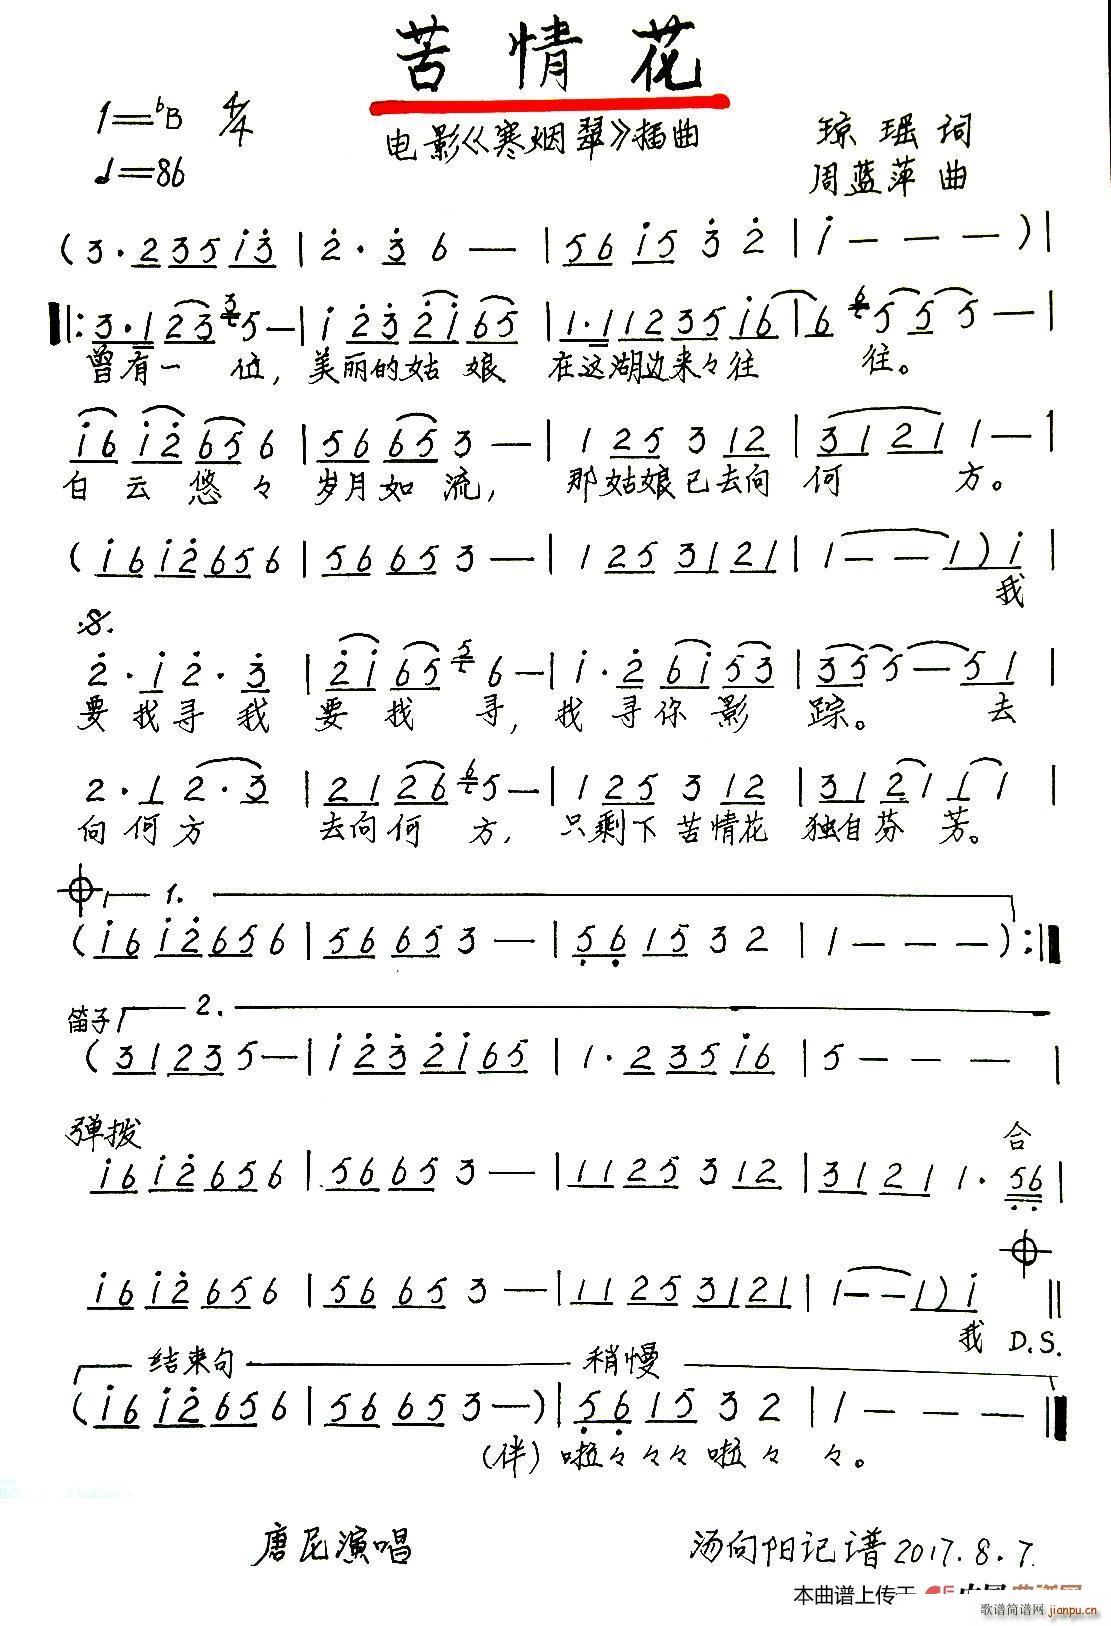 苦情花
1=♭B 4/4
电影《寒烟翠》插曲
琼瑶词
♩=86
周蓝萍曲
(3·235i̇3̇|2̇·3̇6—|56i̇53̇2̇|i̇———)|
‖:3·123 5—|i̇2̇3̇2̇i̇65|1·11235i̇6i̇|6 555—|
曾有一位,美丽的姑娘在这湖边来々往往。
i̇6i̇2̇656|56653—|125312|31211—|
白云悠々岁月如流,那姑娘已去向何方。
(i̇6i̇2̇656|56653—|1253121|1——1)i̇|
我
𝄋
2̇·i̇2̇·3̇|2̇i̇65 6—|i̇·2̇6i̇53|355—51|
要找寻我要找寻,找寻你影踪。去
2·12·3|2126 5—|125312|3121 11|
向何方去向何方,只剩下苦情花独自芬芳。
𝄌 1.
(i̇6i̇2̇656|56653—|5̣6̣1532|1———):‖
笛子 2.
(31235—|i̇2̇3̇2̇i̇65|1·235i̇6|5———|
弹拨
合
i̇6i̇2̇656|56653—|1125312|31211·5̣6̣|
𝄌
i̇6i̇2̇656|56653—|11253121|1——1)i̇‖
我 D.S.
结束句 稍慢
(i̇6i̇2̇656|56653—)|5̣6̣1532|1———‖
(伴)啦々々々啦々々。
唐尼演唱
汤向阳记谱2017.8.7.
本曲谱上传于
歌谱简谱网
jianpu.cn